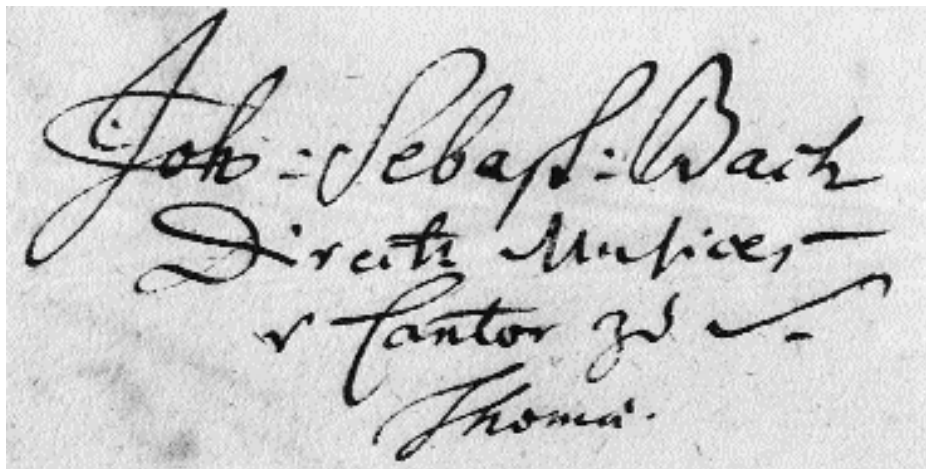 Joh: Sebast: Bach
Director Musices
Cantor zu S.
Thomae.